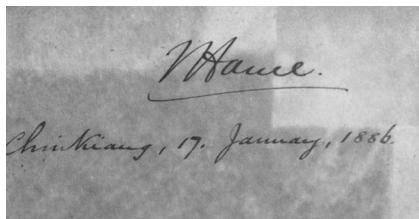 Chinkiang, 17. January, 1886.